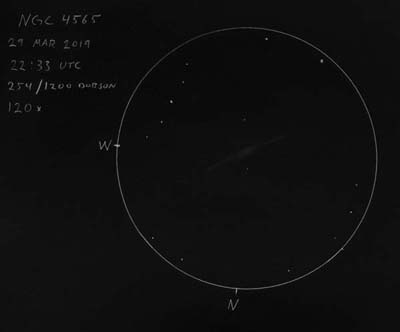 NGC 4565
29 MAR 2019
22:33 UTC
254/1200 DOBSON
120x
W
N